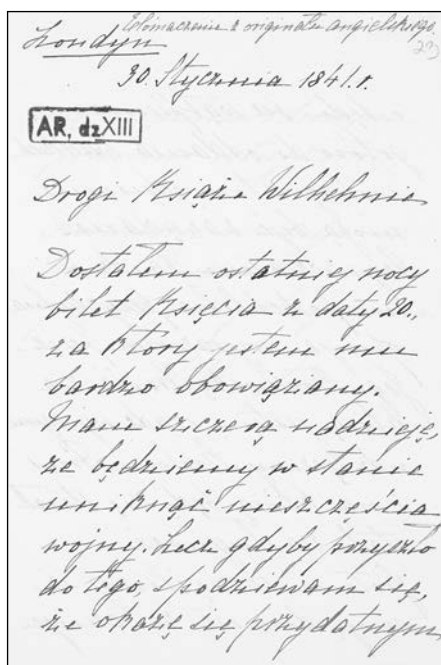 Tłómaczenie z oryginału angielskiego.
23
Londyn
30. Stycznia 1841. r.
AR, dz XIII
Drogi Książe Wilhelmie
Dostałem ostatniej nocy
bilet Księcia z daty 20.,
za który jestem mu
bardzo obowiązany.
Mam szczerą nadzieję,
że będziemy w stanie
uniknąć nieszczęścia
wojny. Lecz gdyby przyszło
do tego, spodziewam się,
że okażę się przydatnym